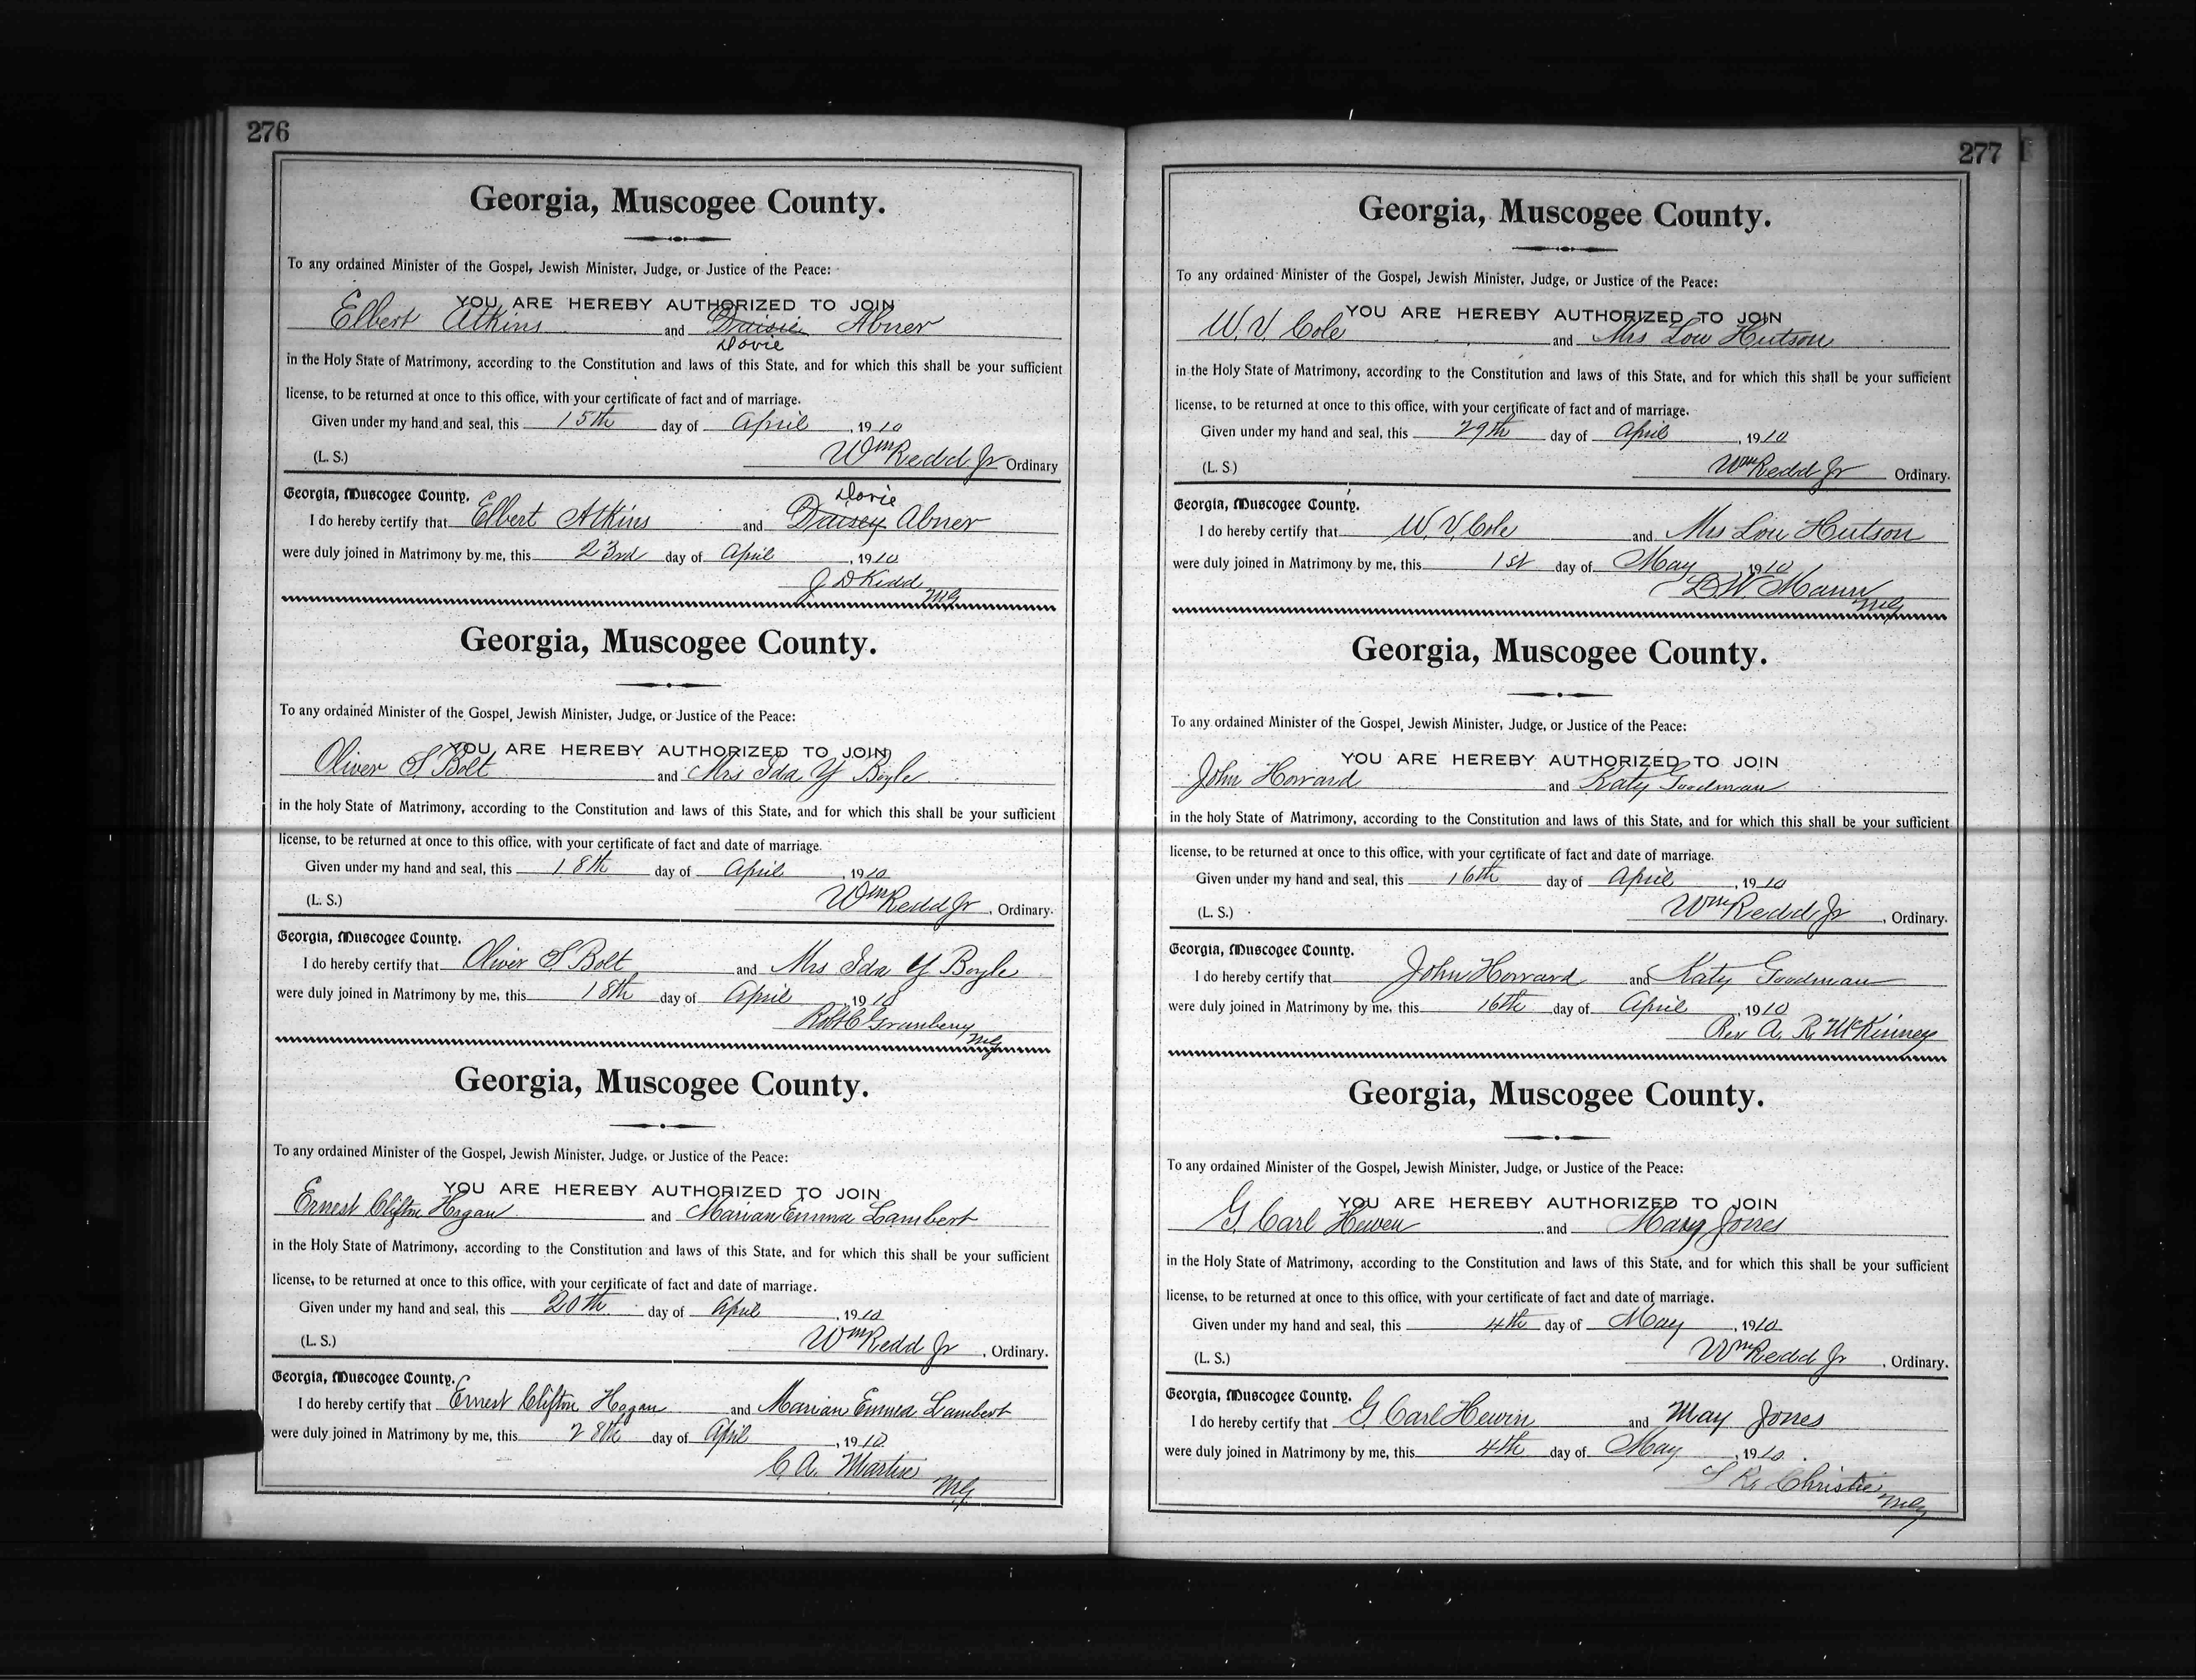 276
Georgia, Muscogee County.
To any ordained Minister of the Gospel, Jewish Minister, Judge, or Justice of the Peace:
YOU ARE HEREBY AUTHORIZED TO JOIN
Elbert Atkins and Daisie Abner
Dovie
in the Holy State of Matrimony, according to the Constitution and laws of this State, and for which this shall be your sufficient
license, to be returned at once to this office, with your certificate of fact and of marriage.
Given under my hand and seal, this 15th day of April, 1910
(L. S.) Wm Redd Jr Ordinary
Georgia, Muscogee County. Dovie
I do hereby certify that Elbert Atkins and Daisey Abner
were duly joined in Matrimony by me, this 23rd day of April, 1910
J D Kidd
MG
Georgia, Muscogee County.
To any ordained Minister of the Gospel, Jewish Minister, Judge, or Justice of the Peace:
YOU ARE HEREBY AUTHORIZED TO JOIN
Oliver S Bolt and Mrs Ida Y Boyle
in the holy State of Matrimony, according to the Constitution and laws of this State, and for which this shall be your sufficient
license, to be returned at once to this office, with your certificate of fact and date of marriage.
Given under my hand and seal, this 18th day of April, 1910
(L. S.) Wm Redd Jr, Ordinary.
Georgia, Muscogee County.
I do hereby certify that Oliver S Bolt and Mrs Ida Y Boyle
were duly joined in Matrimony by me, this 18th day of April, 1910
Robt C Granberry
MG
Georgia, Muscogee County.
To any ordained Minister of the Gospel, Jewish Minister, Judge, or Justice of the Peace:
YOU ARE HEREBY AUTHORIZED TO JOIN
Ernest Clifton Hogan and Marian Emma Lambert
in the Holy State of Matrimony, according to the Constitution and laws of this State, and for which this shall be your sufficient
license, to be returned at once to this office, with your certificate of fact and date of marriage.
Given under my hand and seal, this 20th day of April, 1910
(L. S.) Wm Redd Jr, Ordinary.
Georgia, Muscogee County.
I do hereby certify that Ernest Clifton Hogan and Marian Emma Lambert
were duly joined in Matrimony by me, this 28th day of April, 1910
C A. Martin
MG
277
Georgia, Muscogee County.
To any ordained Minister of the Gospel, Jewish Minister, Judge, or Justice of the Peace:
YOU ARE HEREBY AUTHORIZED TO JOIN
W. V. Cole and Mrs Lou Hutson
in the Holy State of Matrimony, according to the Constitution and laws of this State, and for which this shall be your sufficient
license, to be returned at once to this office, with your certificate of fact and of marriage.
Given under my hand and seal, this 29th day of April, 1910
(L. S.) Wm Redd Jr Ordinary.
Georgia, Muscogee County.
I do hereby certify that W. V. Cole and Mrs Lou Hutson
were duly joined in Matrimony by me, this 1st day of May, 1910
L. W. Mann
MG
Georgia, Muscogee County.
To any ordained Minister of the Gospel, Jewish Minister, Judge, or Justice of the Peace:
YOU ARE HEREBY AUTHORIZED TO JOIN
John Howard and Katy Goodman
in the holy State of Matrimony, according to the Constitution and laws of this State, and for which this shall be your sufficient
license, to be returned at once to this office, with your certificate of fact and date of marriage.
Given under my hand and seal, this 16th day of April, 1910
(L. S.) Wm Redd Jr, Ordinary.
Georgia, Muscogee County.
I do hereby certify that John Howard and Katy Goodman
were duly joined in Matrimony by me, this 16th day of April, 1910
Rev A. R. McKinney
Georgia, Muscogee County.
To any ordained Minister of the Gospel, Jewish Minister, Judge, or Justice of the Peace:
YOU ARE HEREBY AUTHORIZED TO JOIN
G. Carl Hewen and Mary Jones
in the Holy State of Matrimony, according to the Constitution and laws of this State, and for which this shall be your sufficient
license, to be returned at once to this office, with your certificate of fact and date of marriage.
Given under my hand and seal, this 4th day of May, 1910
(L. S.) Wm Redd Jr, Ordinary.
Georgia, Muscogee County.
I do hereby certify that G Carl Hewin and May Jones
were duly joined in Matrimony by me, this 4th day of May, 1910.
Christie
MG